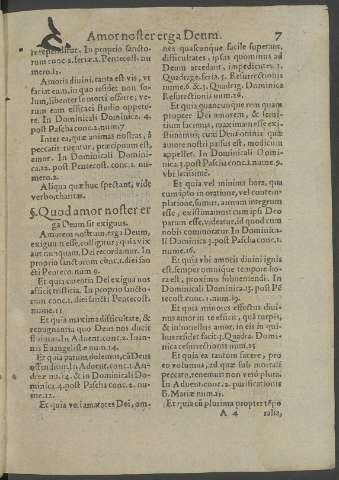 Amor noster erga Deum. 7
In proprio sancto-
rum conc.2. feriæ.2. Pentecost. nu
mero.12.
Amoris diuini, tanta est vis, vt
fariat eum, in quo residet non so-
lum, libenter se morti offerre; ve-
rum etiam efficaci studio oppete-
re. In Dominicali Dominica. 4.
post Pascha conc.2. num.7
Inter ea, quæ animas nostras, à
peccatis tuentur, præcipuum est,
amor. In Dominicali Domini-
ca.12. post Pentecost. conc.2. nu-
mero.2.
Aliqua quæ huc spectant, vide
verbo, charitas.
§. Quod amor noster er
ga Deum sit exiguus.
Amorem nostrum, erga Deum,
exiguum esse, colligitur; quia vix
aut nunquam, Dei recordamur. In
proprio sanctorum conc.1. diei san
cti Penteco. num 9.
Et quia
Dei exigua nos
afficit tristitia. In proprio sancto-
rum conc.1. diei sancti Pentecost.
nume.11
Et quia maxima difficultate, &
repugnantia quo Deus nos ducit
In Aduent. conc.2. Ioan-
nis Euangelistæ num.14.
Et quia parum dolemus, cũ Deus
In Aduent. conc.1. An-
dreæ nu.14. & in Dominicali Do-
minica.4. post Pascha conc.2. nu-
me.12.
Et quia veri amatores Dei, om-
nes quascunque facile superant,
difficultates, ipsas quominus ad
Deum accedant, impedientes. 1.
Quadrage. feria.5. Resurrectionis
nume.6 & 3. Quadrag. Dominica
Resurrectionis num.16.
Et quia quamcunque rem quam
propter Dei amorem, & serui-
tium facimus, maximam esse exi-
stimamus; cum Deus omnia quæ
amore nostri passus est, modicum
appellet. In Dominicali Domi-
nica.3. post Pascha conc.1. nume.9.
vbi latissimè.
Et quia vel minimo hora, qua
cum ipso in oratione, vel contem-
platione, sumus, annum integrum
esse, existimamus; cum ipsi Deo
parum esse, videatur, id quod cum
nobis commoratur. In Dominica-
li Dominica.3. post Pascha conc.1.
nume.16.
Et quia vbi amotis diuini ignis
est, semper omnique tempore ho-
ra est, proximo subueniendi. In
Dominicali Dominica.15. post Pē
tecost. conc.1. num.19.
Et quia minores effectus diui-
nus amor in te efficit, quã turpis,
& inhonestus amor, in eis in qui-
bus residet facit. 3. Quadra. Domi-
nica resurrectionis num.15
Et quia ea tantum facere, pro
eo volumus, ad quæ sub mortali
peccato, tenemur non vero plura.
In Aduent. conc.2. purificationis
B. Mariæ num.15.
Et quia cũ plurima propter tēpo
A 4 ralia,